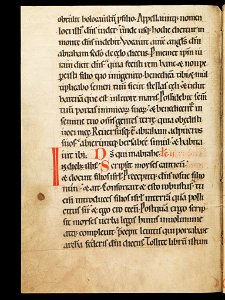 obtulit holocaustũ ꝓ filio. Appellauitq; nomen
loci illi⁹ dñs uidet. unde usq; hodie dicitur in
monte dñs uidebit. uocauit autẽ angl̃s dñi
abraham sc̃do de celo dicens. P̱ memet ipsũ iu
raui dicit dñs. quia fecisti rem hanc & non pe
ꝑcisti filio tuo unigenito. benedicã tibi & mul
tiplicabo semen tuũ sicut stellas celi & uelut
harenã que est in litore maris. Possidebit sem̃
tuũ portas inimicorũ suorũ. & benedicentur in
semine tuo om̃s gentes terre. quia obedisti
uoci mee. Reuersusq; ẽ abraham ad pueros
suos. abieruntq; bersabee simul & habita
uit ibi. Ds̃ qui in abrahe
In diebus illis. Scripsit moyses canticũ
& docuit filios isrl̃. Precepitq; dñs iosue filio
nun & ait. Confortare & esto robustus. tu
eni introduces filios isrl̃ in terrã quã polli
citus sũ & ego ero tecũ. Postquã ergo scrip
sit moyses uerba legis huius in uolumine
atq; compleuit. precepit leuitis qui portabant
archã federis dñi dicens. Tollite librũ istum